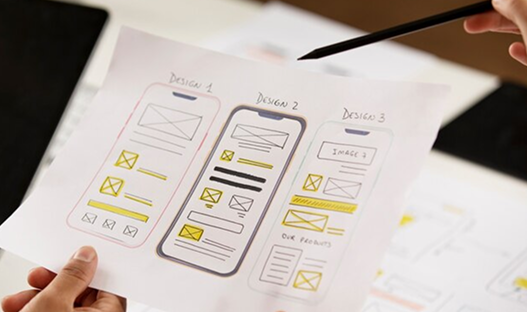 DESIGN 1
DESIGN 2
DESIGN 3
OUR PRODUCTS